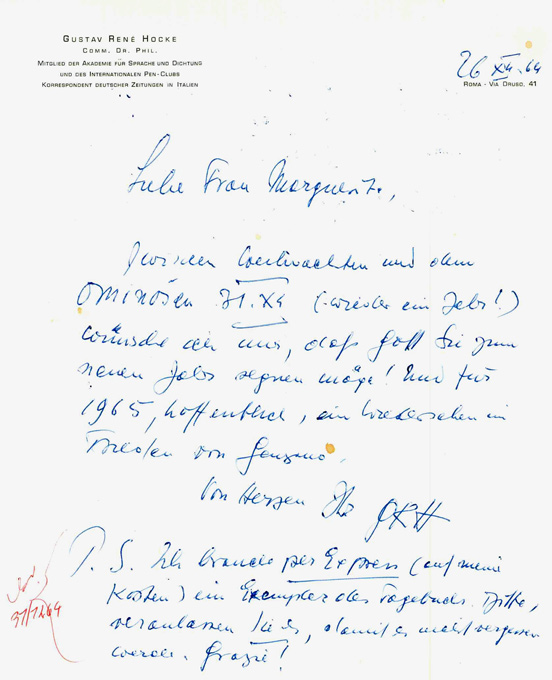 GUSTAV RENÉ HOCKE
COMM. DR. PHIL.
MITGLIED DER AKADEMIE FÜR SPRACHE UND DICHTUNG
UND DES INTERNATIONALEN PEN-CLUBS
KORRESPONDENT DEUTSCHER ZEITUNGEN IN ITALIEN
26 XII. 64
ROMA - VIA DRUSO, 41
Liebe Frau Marguerite,
Zwischen Weihnachten und dem
Ominösen 31.XII (- wieder ein Jahr!)
wünsche ich uns, daß Gott Sie zum
neuen Jahr segnen möge! Und für
1965, hoffentlich, ein Wiedersehen im
Frieden von Genzano.
Von Herzen Ihr GRH
P. S. Ich brauche per Express (auf meine
Kosten) ein Exemplar des Tagebuchs. Bitte,
veranlassen Sie es, damit es nicht vergessen
werde. Grazie!
31/12 64